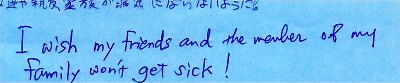 家族が にならないように!!
I wish my friends and the menber of my
family won't get sick !